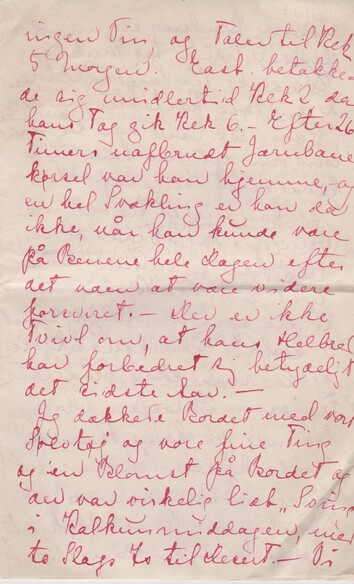 ingen Ting, og Talen til Kek
5 Morgen. East. betakke
de sig imidlertid Kek 2 da
hans Tog gik Kek 6. – Efter 26
Timers uafbrudt Jærnbane
kørsel var han hjemme, og
en hel Svækling er han da
ikke, når han kunde være
på Benene hele Dagen efter
det uden at være videre
forvirret. – Der er ikke
Tvivl om, at hans Helbred
har forbedret sig betydeligt
det sidste Aar. –
Jg dækkede Bordet med vort
Sølvtøj og vore fine Ting
og en Blomst på Bordet og
der var virkelig lidt „Sving"
i Kalkunmiddagen, med
to Slags Is til Desert. – Vi